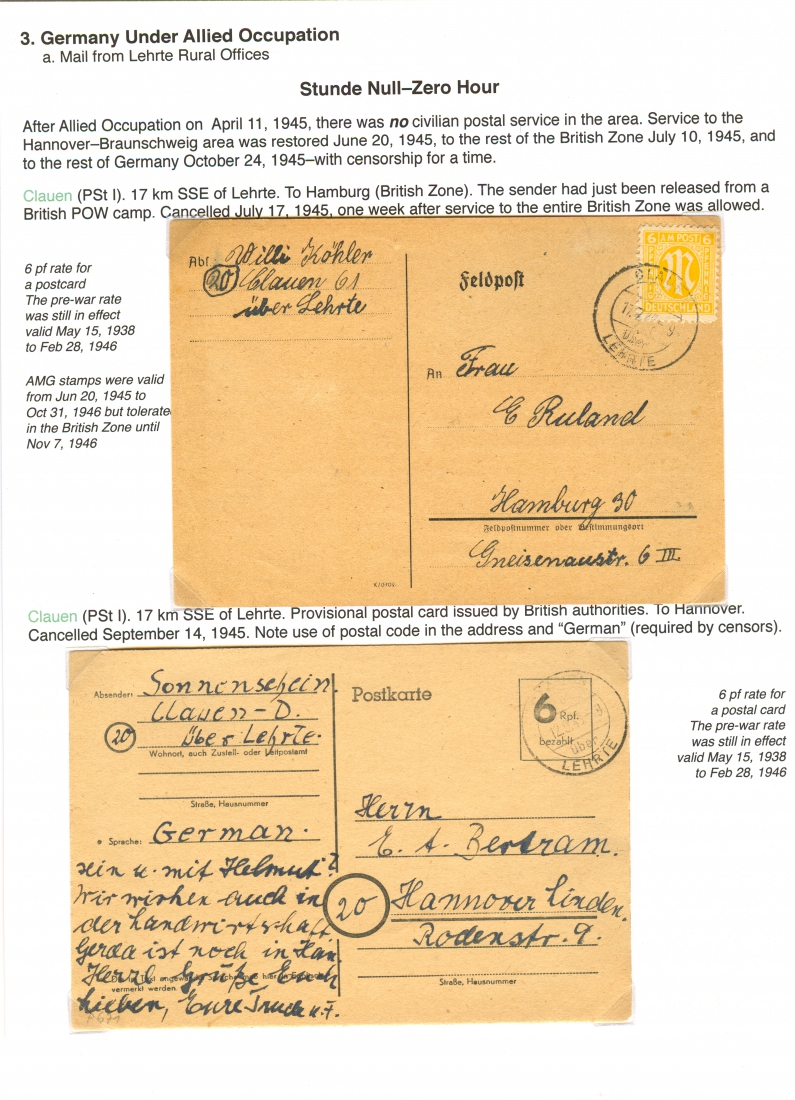 3. Germany Under Allied Occupation
a. Mail from Lehrte Rural Offices
Stunde Null–Zero Hour
After Allied Occupation on April 11, 1945, there was no civilian postal service in the area. Service to the
Hannover–Braunschweig area was restored June 20, 1945, to the rest of the British Zone July 10, 1945, and
to the rest of Germany October 24, 1945–with censorship for a time.
Clauen (PSt I). 17 km SSE of Lehrte. To Hamburg (British Zone). The sender had just been released from a
British POW camp. Cancelled July 17, 1945, one week after service to the entire British Zone was allowed.
6 pf rate for
a postcard
The pre-war rate
was still in effect
valid May 15, 1938
to Feb 28, 1946
AMG stamps were valid
from Jun 20, 1945 to
Oct 31, 1946 but tolerate
in the British Zone until
Nov 7, 1946
Abs Willi Köhler
20 Clauen 61
über Lehrte
Feldpost
6 AM POST 6
M
DEUTSCHLAND
über
LEHRTE
An Frau
E Ruland
Hamburg 30
Feldpostnummer oder Bestimmungsort
Gneisenaustr. 6 III.
Clauen (PSt I). 17 km SSE of Lehrte. Provisional postal card issued by British authorities. To Hannover.
Cancelled September 14, 1945. Note use of postal code in the address and “German” (required by censors).
6 pf rate for
a postal card
The pre-war rate
was still in effect
valid May 15, 1938
to Feb 28, 1946
Absender: Sonnenschein
Clauen-D.
20 über Lehrte.
Wohnort, auch Zustell- oder Leitpostamt
Straße, Hausnummer
Sprache: German.
sein u. mit Helmut?
Wir wirken auch in
der Landwirtschaft
Gerda ist noch in Han.
Herzl. Grüße Euch
vermerkt werden
Lieben, Eure Trude u. F.
Postkarte
6 Rpf.
bezahlt
über
LEHRTE
Herrn
E. A. Bertram.
20 Hannover Linden.
Rodenstr. 9.
Straße, Hausnummer